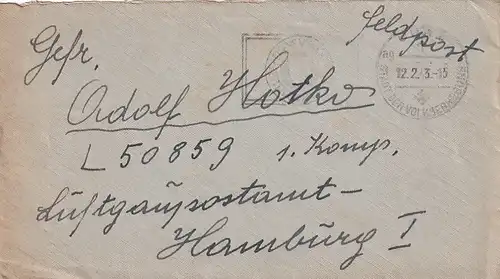 Feldpost
Gefr.
12.2.43.-15
STADT DER VOLKSERHEBUNG
Adolf Hotko
L 50859 1. Komp.
Luftgaupostamt -
Hamburg I